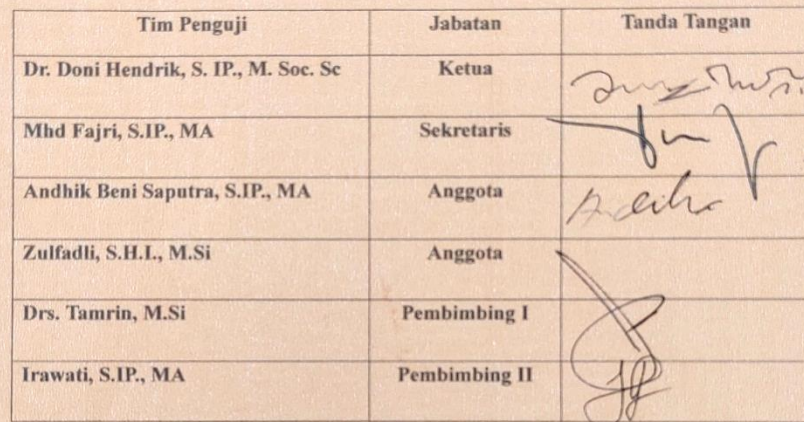 Tim Penguji Jabatan Tanda Tangan
Dr. Doni Hendrik, S. IP., M. Soc. Sc Ketua
Mhd Fajri, S.IP., MA Sekretaris
Andhik Beni Saputra, S.IP., MA Anggota
Zulfadli, S.H.I., M.Si Anggota
Drs. Tamrin, M.Si Pembimbing I
Irawati, S.IP., MA Pembimbing II